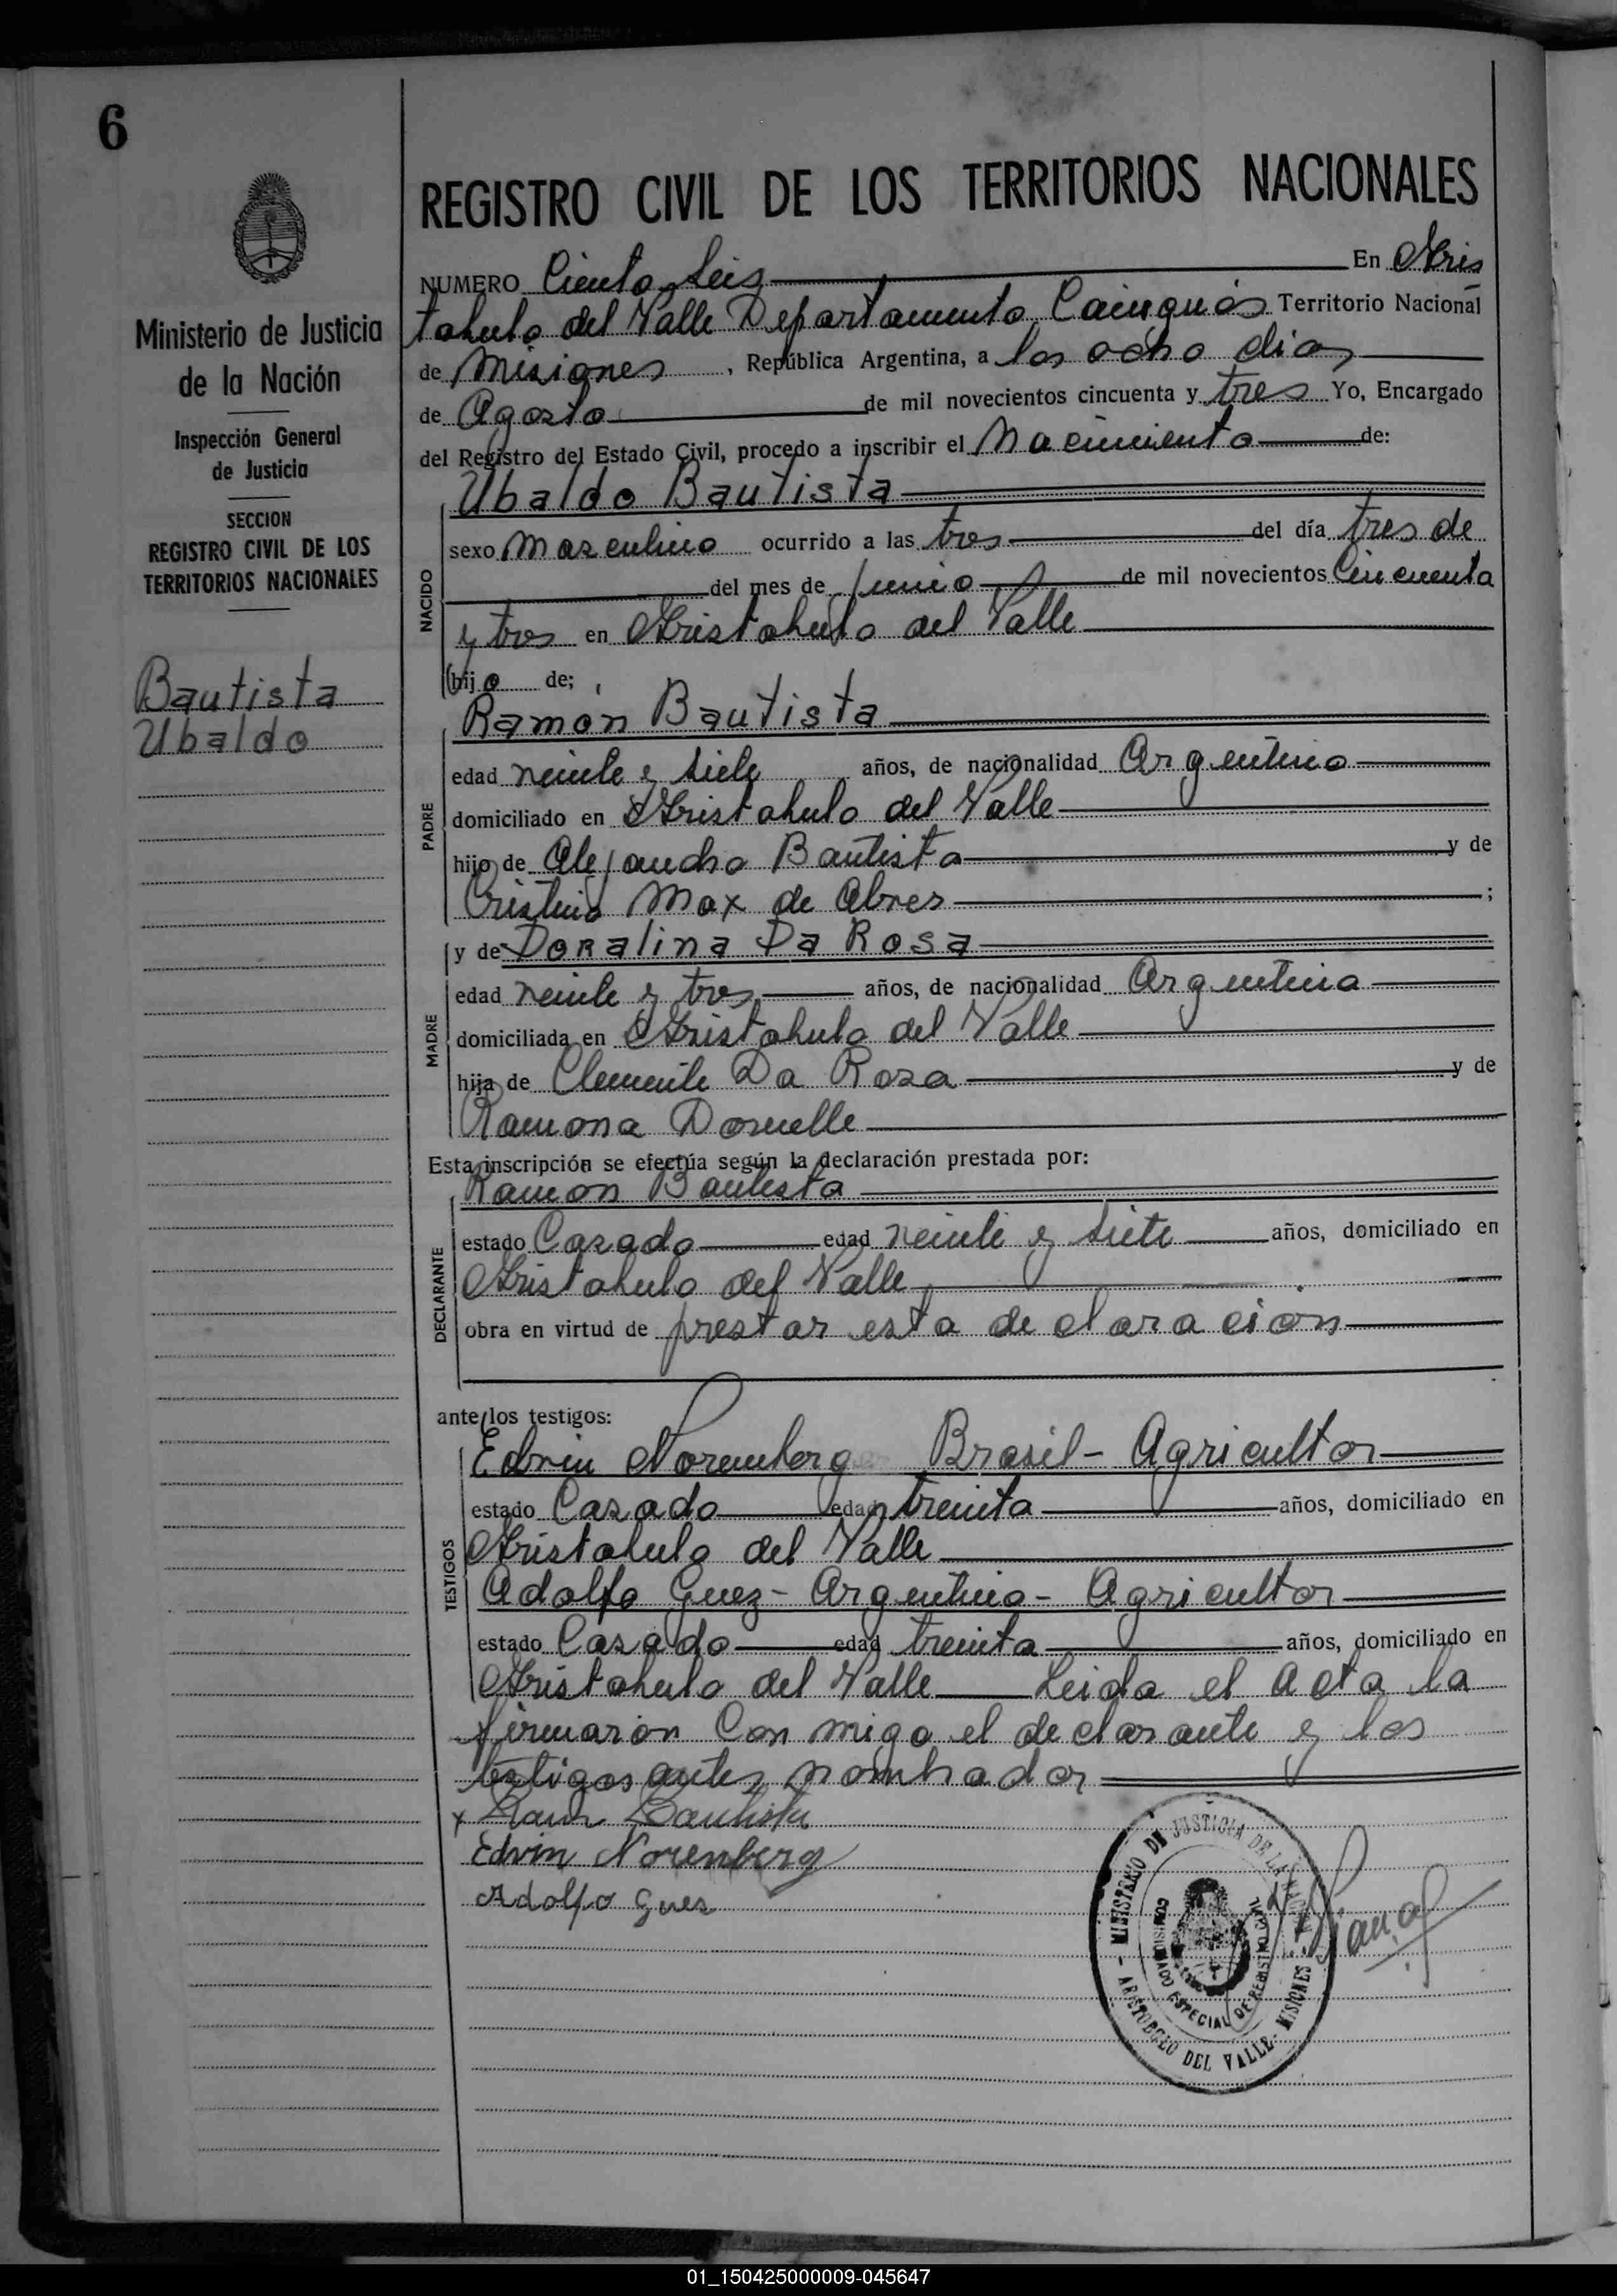 6
REGISTRO CIVIL DE LOS TERRITORIOS NACIONALES
Ministerio de Justicia
de la Nación
Inspección General
de Justicia
SECCION
REGISTRO CIVIL DE LOS
TERRITORIOS NACIONALES
Bautista
Ubaldo
NUMERO Ciento Seis En Aris
tobulo del Valle Departamento Cainguás Territorio Nacional
de Misiones, República Argentina, a los ocho dias
de Agosto de mil novecientos cincuenta y tres Yo, Encargado
del Registro del Estado Civil, procedo a inscribir el Nacimiento de:
NACIDO
Ubaldo Bautista
sexo Masculino ocurrido a las tres del día tres de
del mes de Junio de mil novecientos Cincuenta
y tres en Aristobulo del Valle
hijo de;
PADRE
Ramón Bautista
edad veinte y siete años, de nacionalidad Argentino
domiciliado en Aristobulo del Valle
hijo de Alejandro Bautista y de
Cristina Max de Abres ;
MADRE
y de Doralina Da Rosa
edad veinte y tres años, de nacionalidad Argentina
domiciliada en Aristobulo del Valle
hija de Clemente Da Rosa y de
Ramona Dornelle
Esta inscripción se efectúa según la declaración prestada por:
DECLARANTE
Ramon Bautista
estado Casado edad veinte y siete años, domiciliado en
Aristobulo del Valle
obra en virtud de prestar esta declaración
ante los testigos:
TESTIGOS
Edvin Noremberg Brasil - Agricultor
estado Casado edad treinta años, domiciliado en
Aristobulo del Valle
Adolfo Guez - Argentino - Agricultor
estado Casado edad treinta años, domiciliado en
Aristobulo del Valle Leida el acta la
firmarón Con migo el declarante y los
testigos antes nombrador
x Bautista
Edvin Norenberg
Adolfo Gues
MINISTERIO DE JUSTICIA DE LA NACION
COMISIONADO ESPECIAL DE REGISTRO CIVIL
ARISTOBULO DEL VALLE - MISIONES
01_150425000009-045647